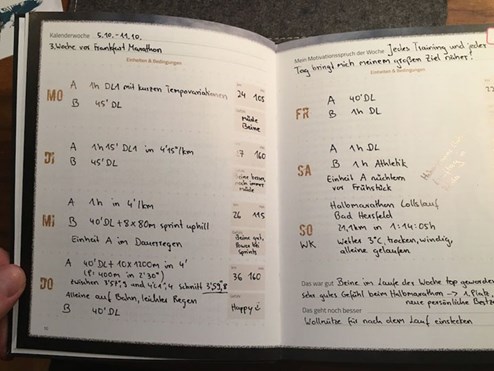 Kalenderwoche 5.10. - 11.10.
3. Woche vor Frankfurt Marathon
Einheiten & Bedingungen
MO
A 1h DL1 mit kurzen Tempovariationen
B 45' DL
24 105
müde Beine
DI
A 1h 15' DL1 in 4'15"/km
B 45' DL
27 160
immer müde
MI
A 1h in 4'/km
B 40' DL + 8x80m sprint uphill
Einheit A im Dauerregen
26 115
Beine gut,
sprints
DO
A 40' DL + 10x1200m in 4'
(P: 400m in 2'30")
zwischen 3'57"; 9 und 4'01"; 4 Schnitt 3'59"; 8
Alleine auf Bahn, leichter Regen
B 40' DL
36 160
Happy
Mein Motivationsspruch der Woche Jedes Training und jeder
Tag bringt mich meinem großen Ziel näher!
Einheiten & Bedingungen
FR
A 40' DL
B 1h DL
SA
A 1h DL
B 1h Athletik
Einheit A nüchtern
vor Frühstück
SO
WK
Halbmarathon Lollslauf
Bad Hersfeld
21,1km in 1:14:05h
Wetter 3°C, trocken, windig
alleine gelaufen
Das war gut Beine im Laufe der Woche top geworden
sehr gutes Gefühl beim Halbmarathon → 1. Platz,
neue persönliche Bestzeit
Das geht noch besser
Wollmütze für nach dem Lauf einstecken